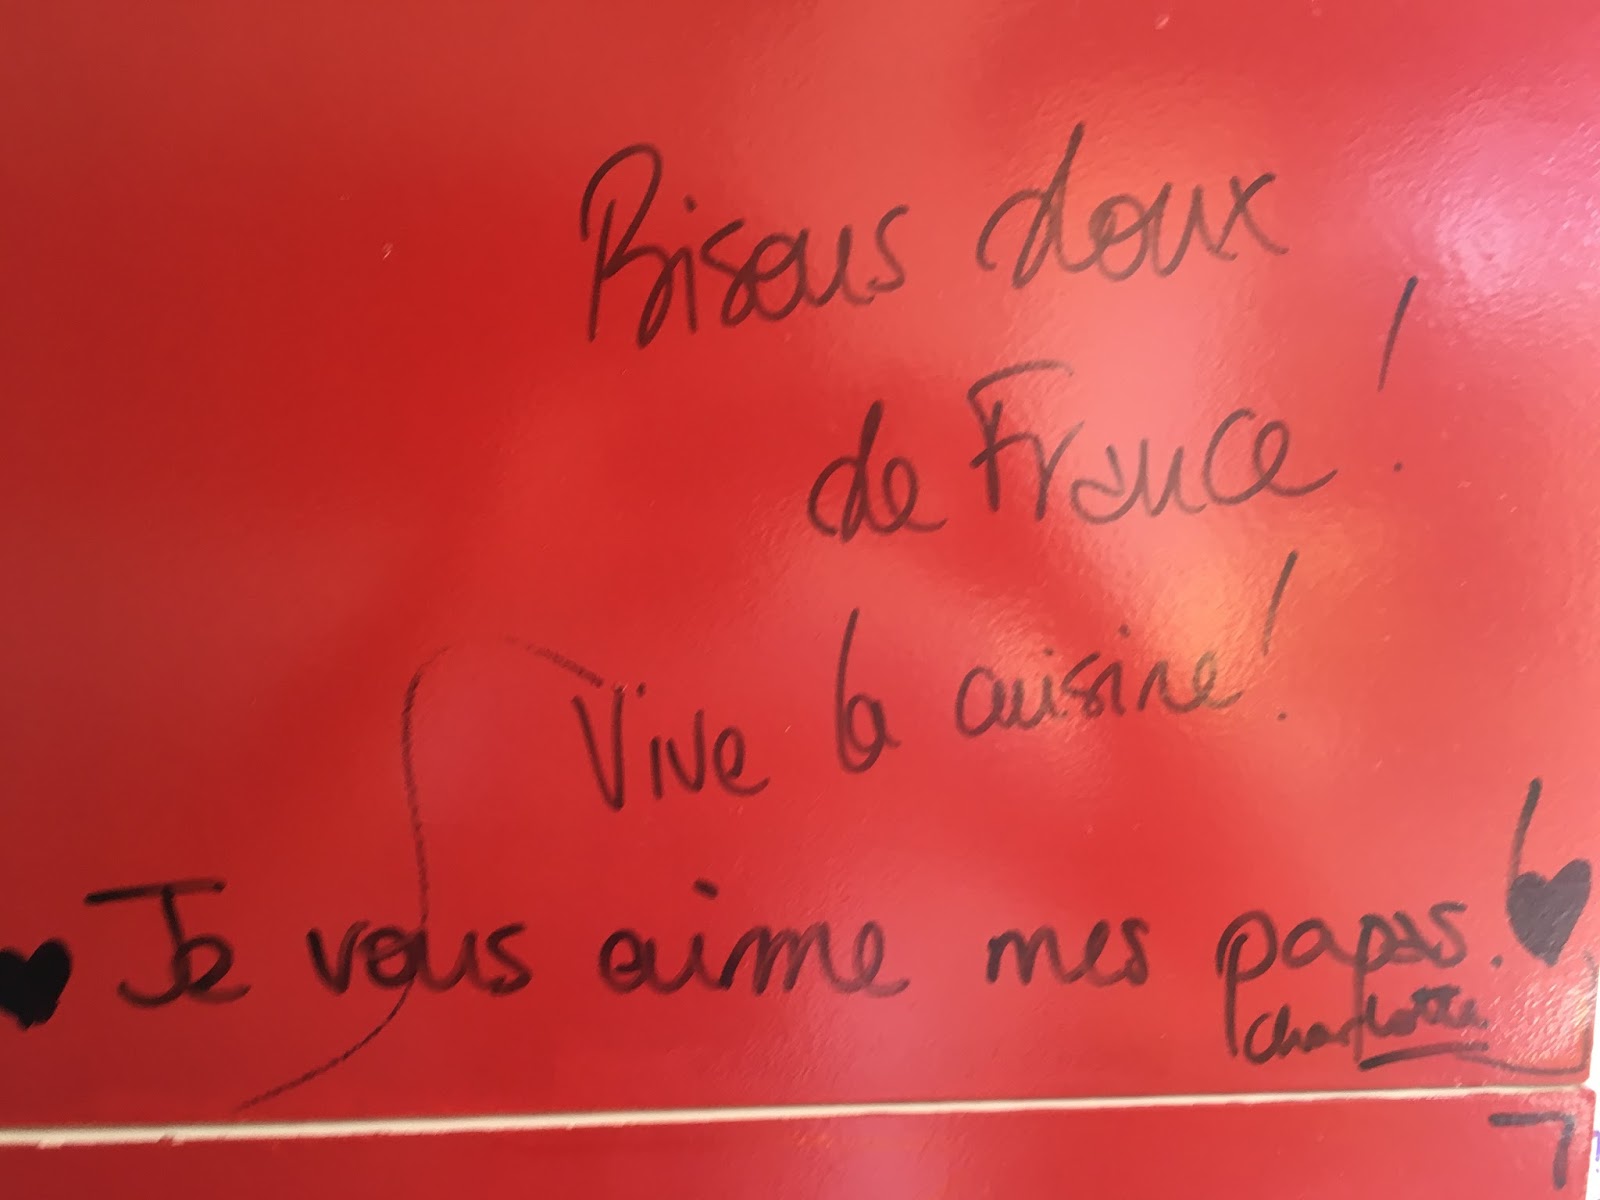 Bisous doux
de France !
Vive la cuisine !
Je vous aime mes papas.
Charlotte